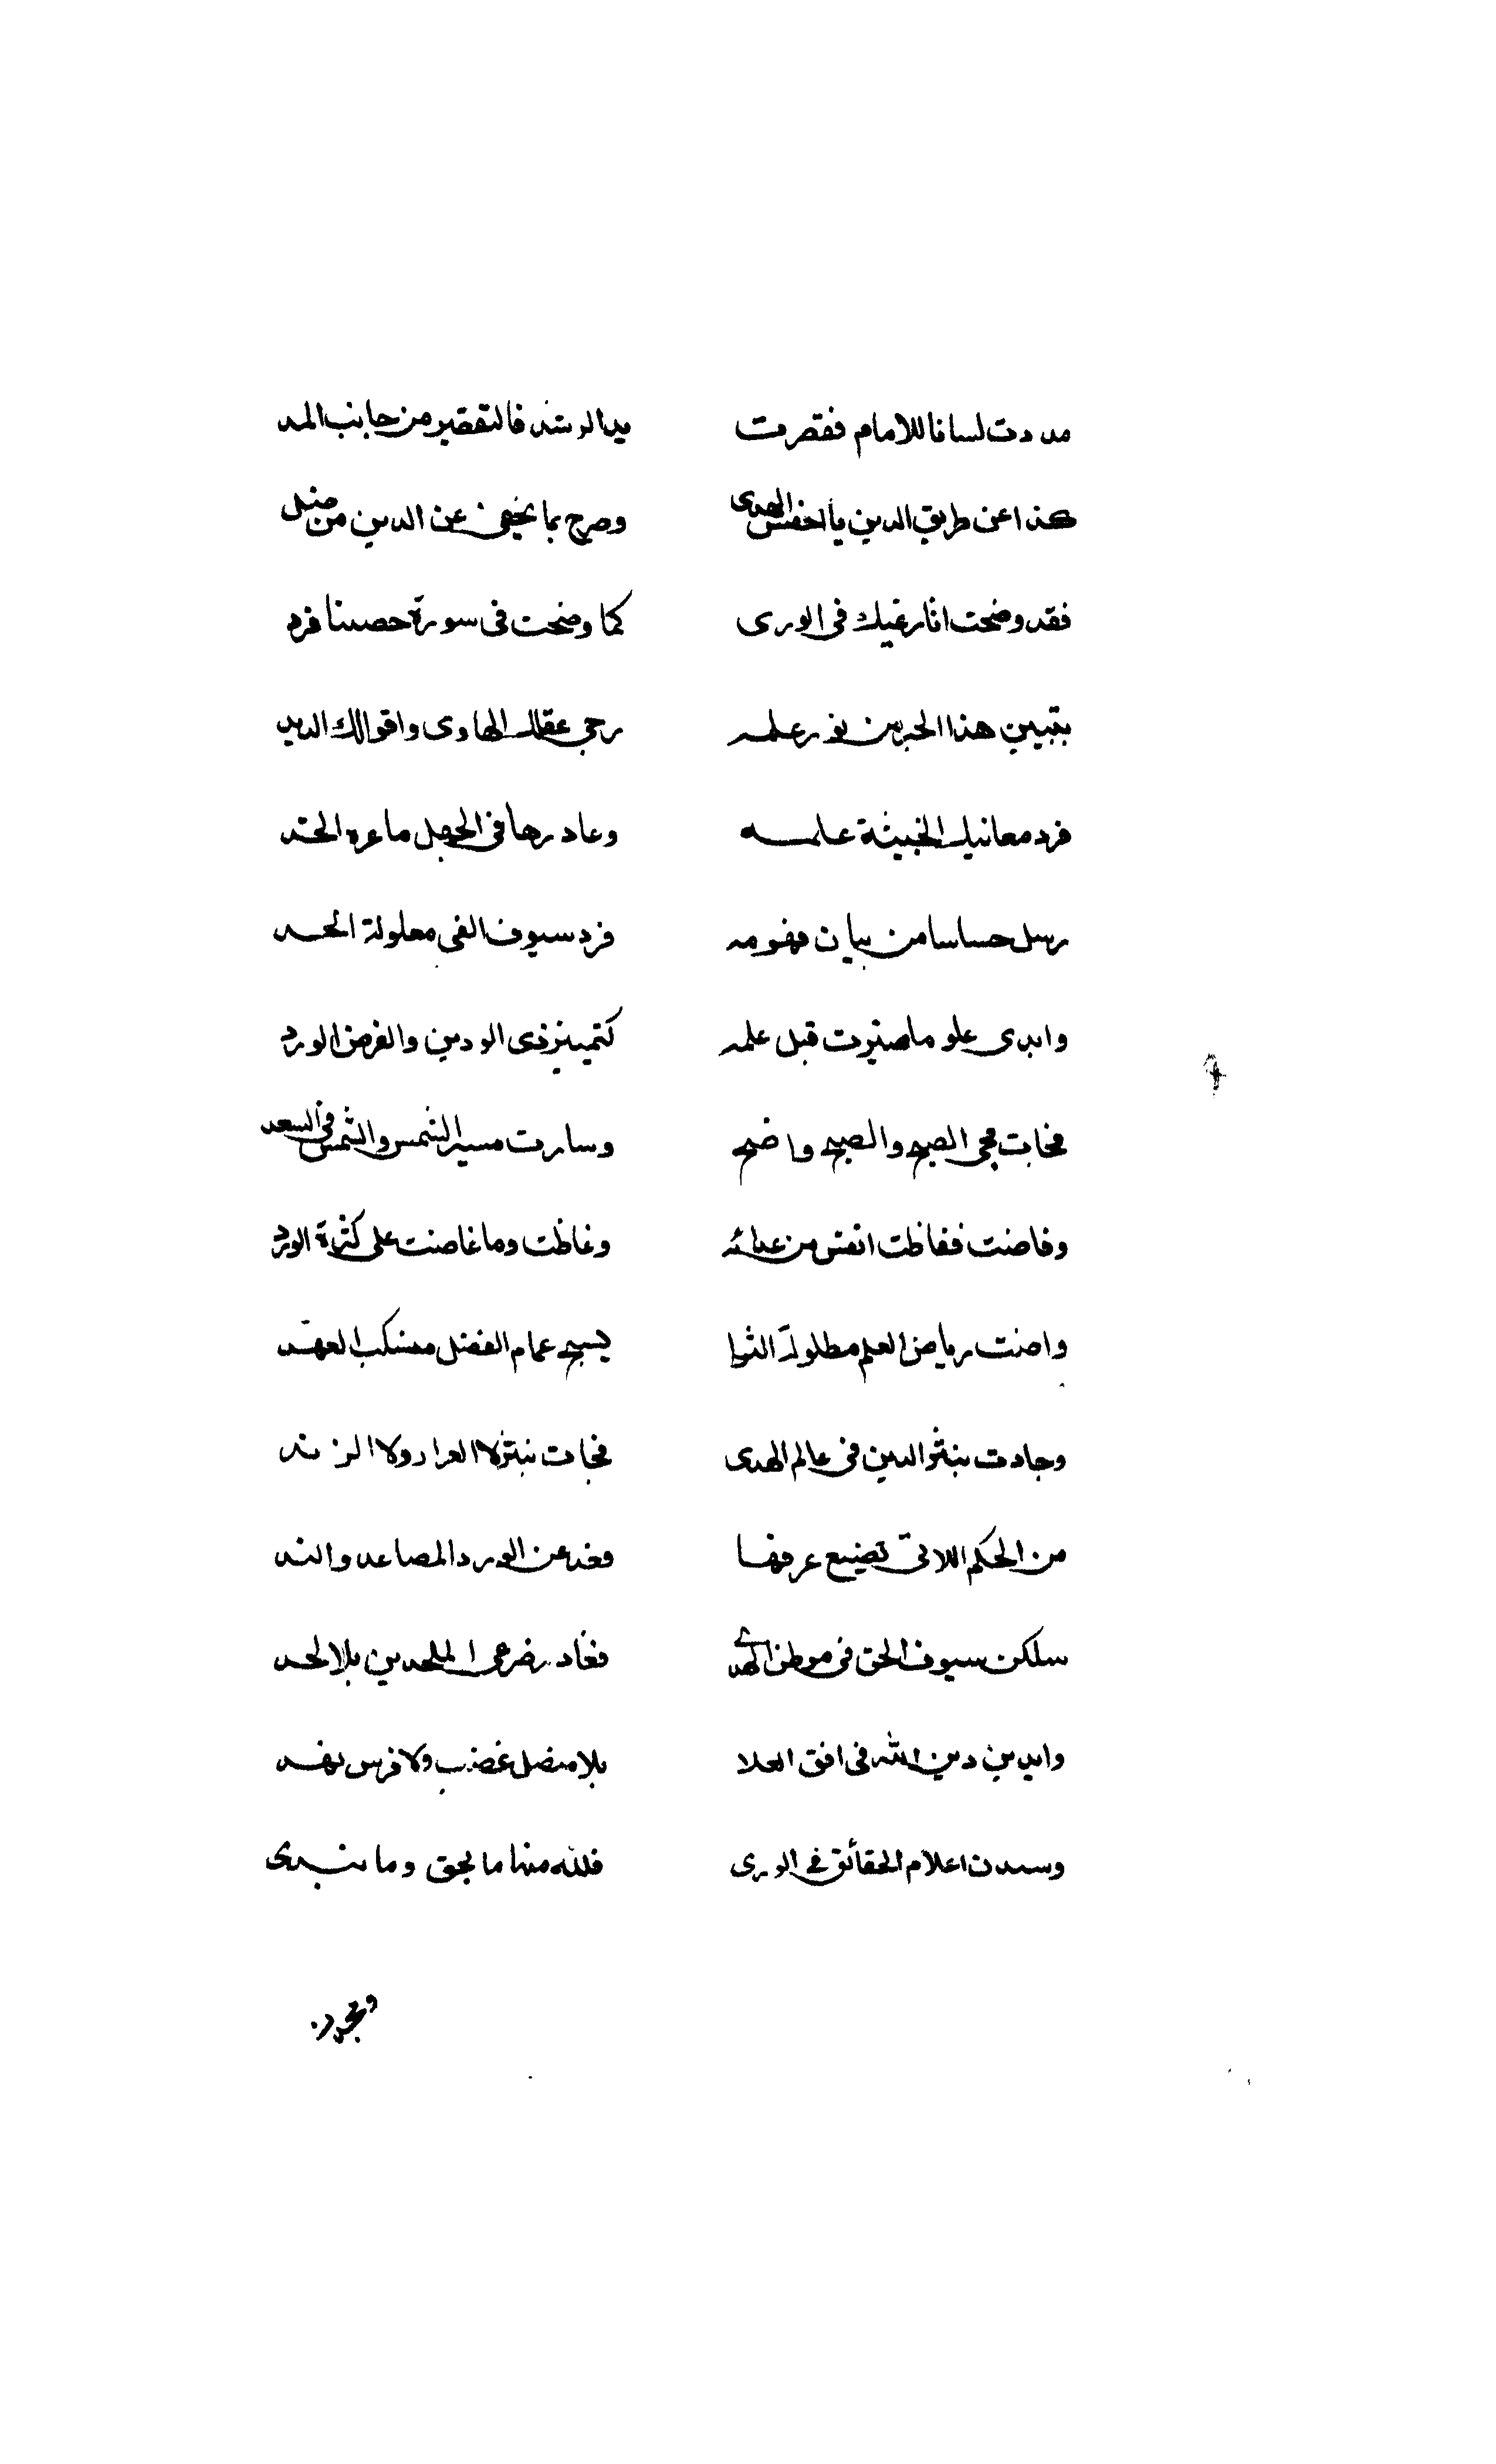 مددت لسانا للامام فقصرت يد الرشد فالتقصير من جانب المد
كذا عن طريق الدين يا اخفش الهدى وصرح بما يخفى عن الدين من ضل
فقد وضحت اثار غيك فى الورى كما وضحت فى سورة خصمنا فرد
بتبيين هذا الحبر من نور علمه رحى عقلك الهاوى واقوالك الدبد
فرد معانيك الخبيثة علمه وغادرها فى الجهل ماعره الحد
وسل حساما من بيان فهومه فرد سيوف الغى مفلولة الحد
وابدى علوما ميزت قبل علمه كتمييز ذى الودين والغرض الورد
فجات مجى الصبح والصبح واضح وسارت مسير الشمس والشمس فى السعد
وفاضت ففاظت انفس من عدائه وغاظت وما غاضت على كثرة الورد
واضت رياض العلم مطلولة الثرا يسبح غمام الفضل منسكب العهد
وجادت بنشر الدين فى عالم الهدى فجات بنشر لا العرار ولا الرند
من الحكم اللاتى تضيع عرفها وخذ عن الورد المصاعد والند
سللن سيوف الحق فى موطن الهدى فغادر صرعى الملحدين بلا لحد
وايدين دين الله فى افق العلا بلا منصل عضب ولا فرس نهد
وسيدن اعلام الحقائق فى الورى فلله منها ما يحق وما تبدى
ومجرد